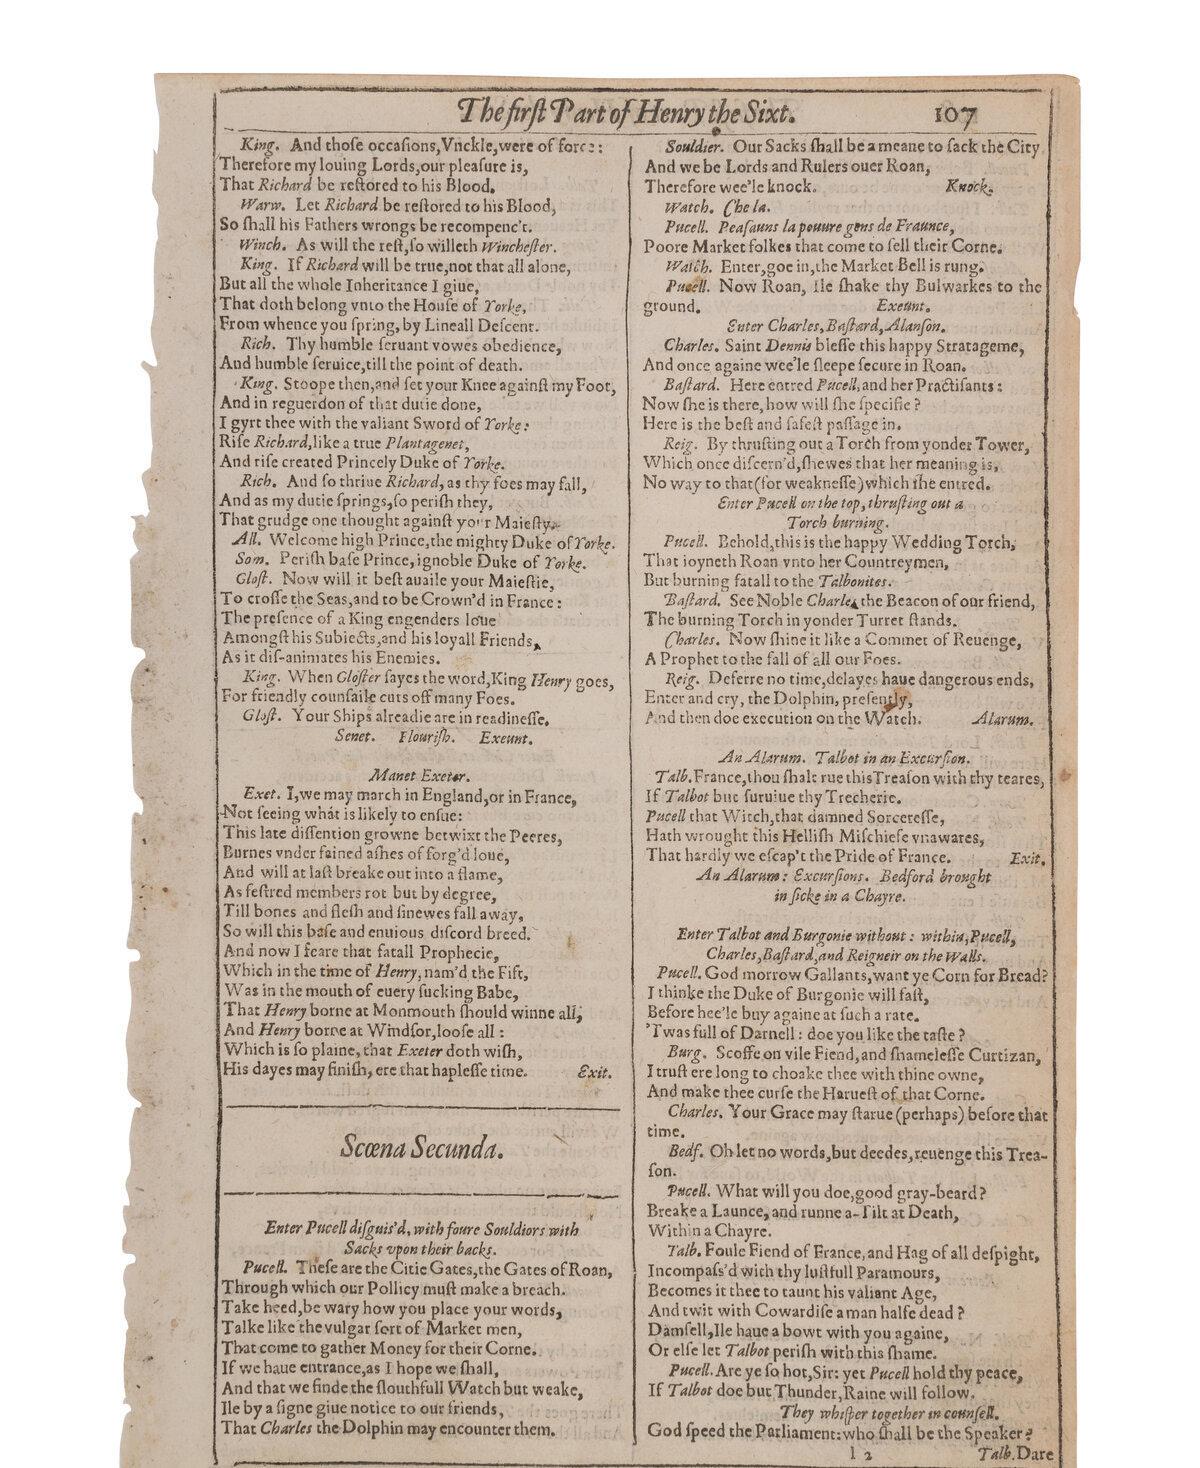 The first Part of Henry the Sixt.
107
King. And those occasions, Vnckle, were of force:
Therefore my louing Lords, our pleasure is,
That Richard be restored to his Blood.
Warw. Let Richard be restored to his Blood,
So shall his Fathers wrongs be recompenc't.
Winch. As will the rest, so willeth Winchester.
King. If Richard will be true, not that all alone,
But all the whole Inheritance I giue,
That doth belong vnto the House of Yorke,
From whence you spring, by Lineall Descent.
Rich. Thy humble seruant vowes obedience,
And humble seruice, till the point of death.
King. Stoope then, and set your Knee against my Foot,
And in reguerdon of that dutie done,
I gyrt thee with the valiant Sword of Yorke:
Rise Richard, like a true Plantagenet,
And rise created Princely Duke of Yorke.
Rich. And so thriue Richard, as thy foes may fall,
And as my dutie springs, so perish they,
That grudge one thought against your Maiesty.
All. Welcome high Prince, the mighty Duke of Yorke.
Som. Perish base Prince, ignoble Duke of Yorke.
Glost. Now will it best auaile your Maiestie,
To crosse the Seas, and to be Crown'd in France:
The presence of a King engenders loue
Amongst his Subiects, and his loyall Friends,
As it dis-animates his Enemies.
King. When Gloster sayes the word, King Henry goes,
For friendly counsaile cuts off many Foes.
Glost. Your Ships alreadie are in readinesse.
Senet. Flourish. Exeunt.
Manet Exeter.
Exet. I, we may march in England, or in France,
Not seeing what is likely to ensue:
This late dissention growne betwixt the Peeres,
Burnes vnder fained ashes of forg'd loue,
And will at last breake out into a flame,
As festred members rot but by degree,
Till bones and flesh and sinewes fall away,
So will this base and enuious discord breed.
And now I feare that fatall Prophecie,
Which in the time of Henry, nam'd the Fift,
Was in the mouth of euery sucking Babe,
That Henry borne at Monmouth should winne all,
And Henry borne at Windsor, loose all:
Which is so plaine, that Exeter doth wish,
His dayes may finish, ere that haplesse time. Exit.
Scœna Secunda.
Enter Pucell disguis'd, with foure Souldiors with
Sacks vpon their backs.
Pucell. These are the Citie Gates, the Gates of Roan,
Through which our Pollicy must make a breach.
Take heed, be wary how you place your words,
Talke like the vulgar sort of Market men,
That come to gather Money for their Corne.
If we haue entrance, as I hope we shall,
And that we finde the slouthfull Watch but weake,
Ile by a signe giue notice to our friends,
That Charles the Dolphin may encounter them.
Souldier. Our Sacks shall be a meane to sack the City,
And we be Lords and Rulers ouer Roan,
Therefore wee'le knock. Knock.
Watch. Che la.
Pucell. Peasauns la pouure gens de Fraunce,
Poore Market folkes that come to sell their Corne.
Watch. Enter, goe in, the Market Bell is rung.
Pucell. Now Roan, Ile shake thy Bulwarkes to the
ground. Exeunt.
Enter Charles, Bastard, Alanson.
Charles. Saint Dennis blesse this happy Stratageme,
And once againe wee'le sleepe secure in Roan.
Bastard. Here entred Pucell, and her Practisants:
Now she is there, how will she specifie?
Here is the best and safest passage in.
Reig. By thrusting out a Torch from yonder Tower,
Which once discern'd, shewes that her meaning is,
No way to that (for weaknesse) which she entred.
Enter Pucell on the top, thrusting out a
Torch burning.
Pucell. Behold, this is the happy Wedding Torch,
That ioyneth Roan vnto her Countreymen,
But burning fatall to the Talbonites.
Bastard. See Noble Charles the Beacon of our friend,
The burning Torch in yonder Turret stands.
Charles. Now shine it like a Commet of Reuenge,
A Prophet to the fall of all our Foes.
Reig. Deferre no time, delayes haue dangerous ends,
Enter and cry, the Dolphin, presently,
And then doe execution on the Watch. Alarum.
An Alarum. Talbot in an Excursion.
Talb. France, thou shalt rue this Treason with thy teares,
If Talbot but suruiue thy Trecherie.
Pucell that Witch, that damned Sorceresse,
Hath wrought this Hellish Mischiefe vnawares,
That hardly we escap't the Pride of France. Exit.
An Alarum: Excursions. Bedford brought
in sicke in a Chayre.
Enter Talbot and Burgonie without: within, Pucell,
Charles, Bastard, and Reigneir on the Walls.
Pucell. God morrow Gallants, want ye Corn for Bread?
I thinke the Duke of Burgonie will fast,
Before hee'le buy againe at such a rate.
'Twas full of Darnell: doe you like the taste?
Burg. Scoffe on vile Fiend, and shamelesse Curtizan,
I trust ere long to choake thee with thine owne,
And make thee curse the Haruest of that Corne.
Charles. Your Grace may starue (perhaps) before that
time.
Bedf. Oh let no words, but deedes, reuenge this Trea-
son.
Pucell. What will you doe, good gray-beard?
Breake a Launce, and runne a-Tilt at Death,
Within a Chayre.
Talb. Foule Fiend of France, and Hag of all despight,
Incompass'd with thy lustfull Paramours,
Becomes it thee to taunt his valiant Age,
And twit with Cowardise a man halfe dead?
Damsell, Ile haue a bowt with you againe,
Or else let Talbot perish with this shame.
Pucell. Are ye so hot, Sir: yet Pucell hold thy peace,
If Talbot doe but Thunder, Raine will follow.
They whisper together in counsell.
God speed the Parliament: who shall be the Speaker?
l 2
Talb. Dare